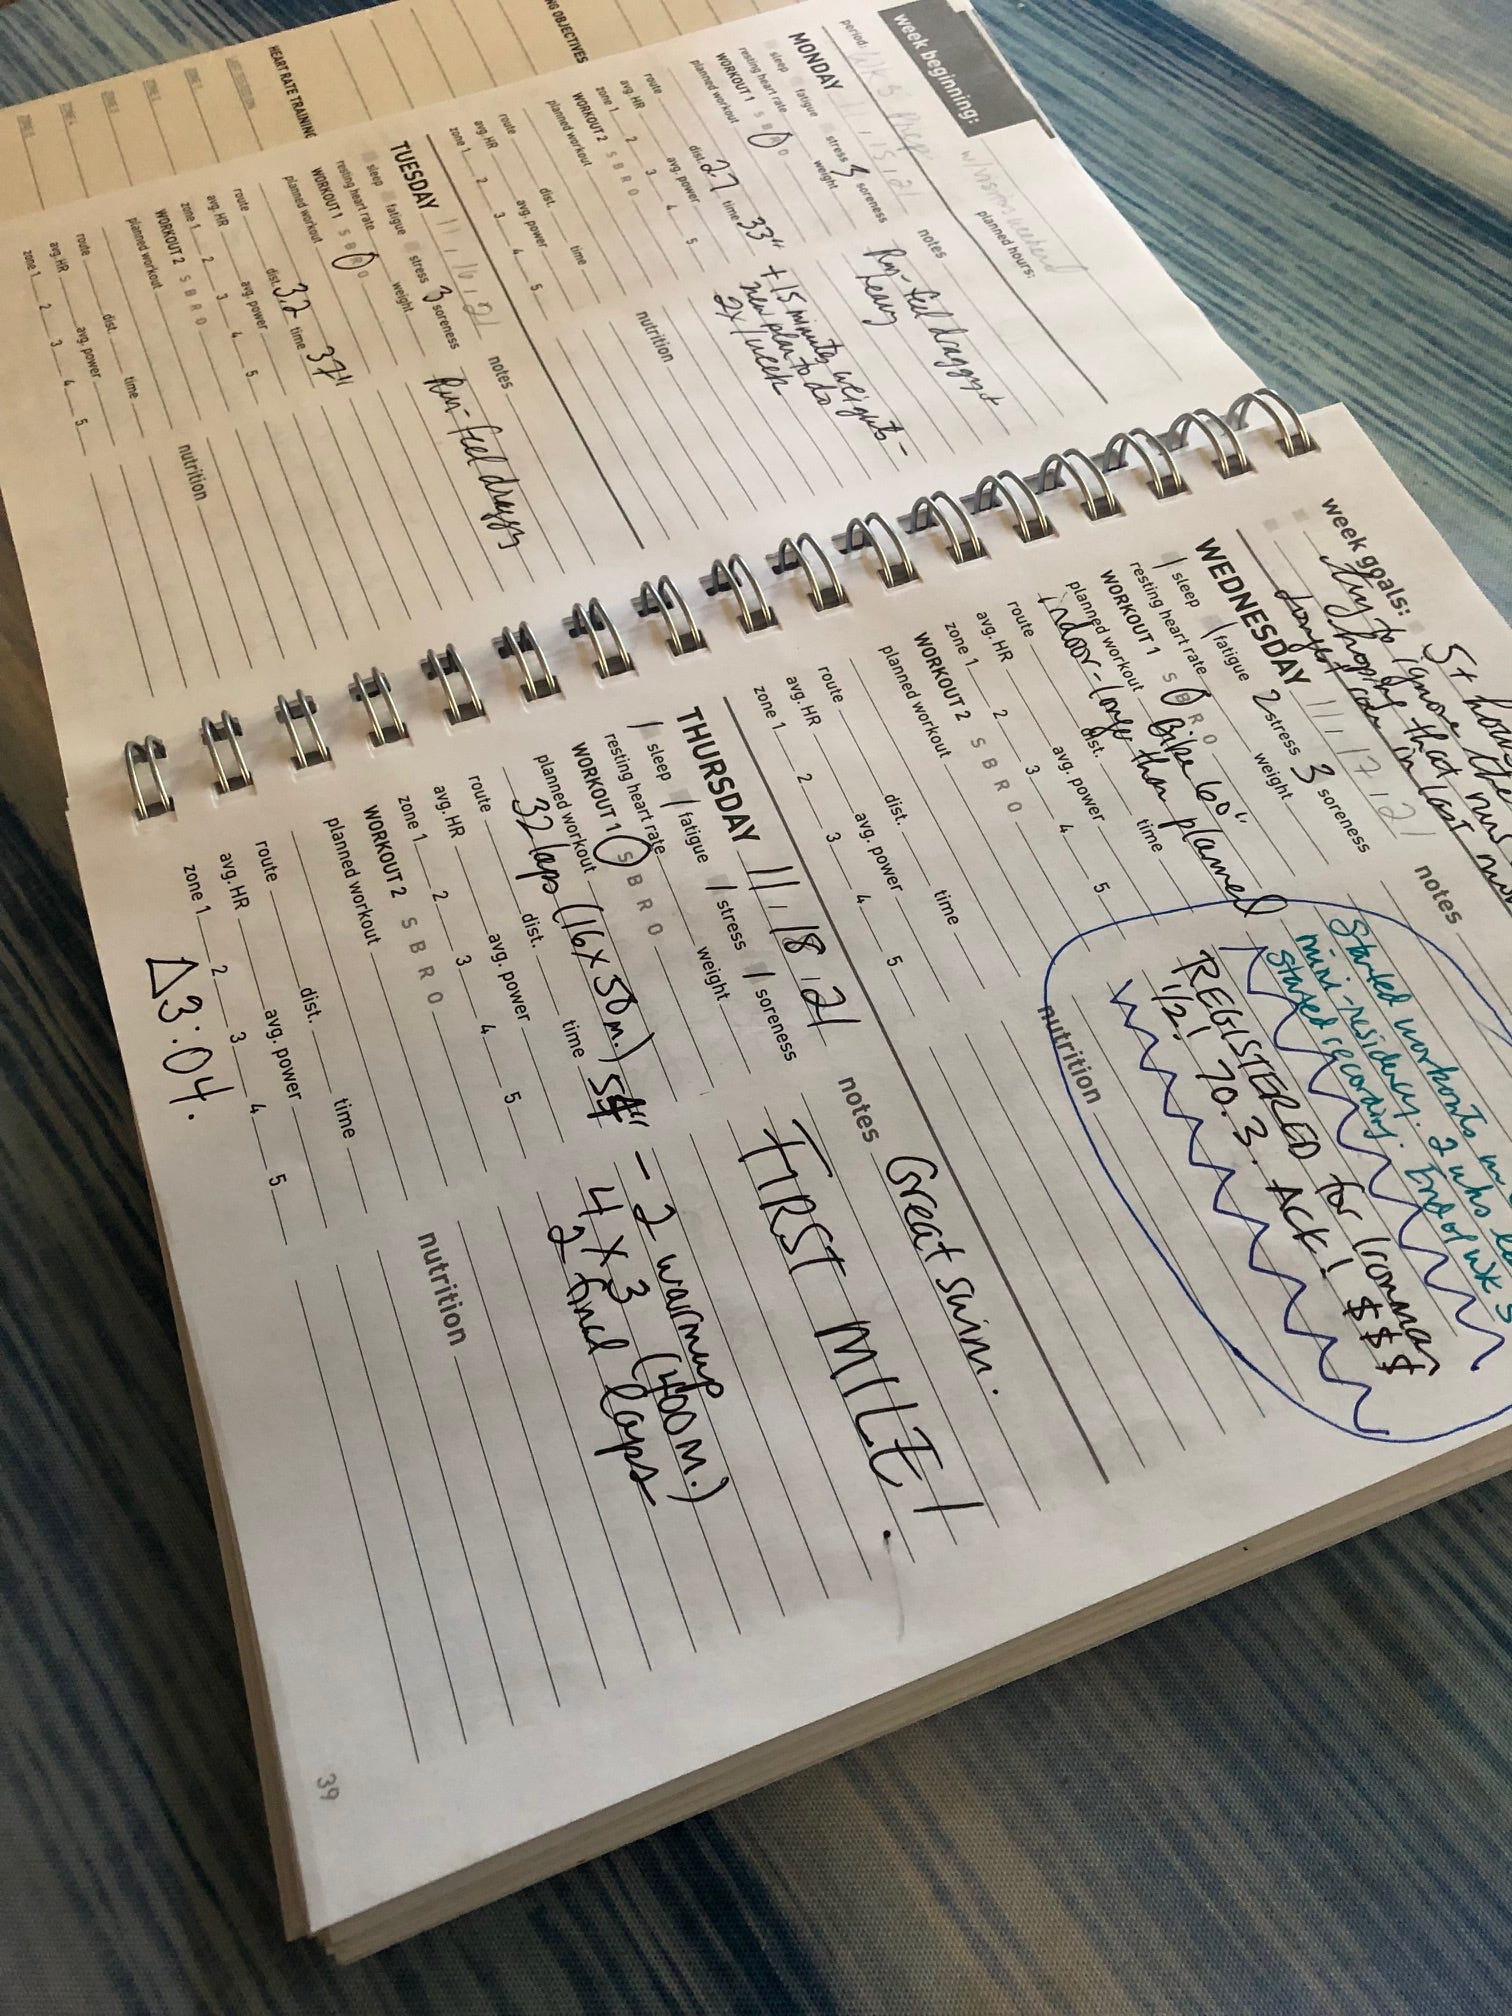 HEART RATE TRAINING
week beginning:
planned hours:
period: WK 5 Prep
MONDAY 11, 15, 21
sleep fatigue stress 3 soreness
resting heart rate weight
WORKOUT 1 S B R O
planned workout
dist. 2.7 time 33"
route
avg. HR avg. power
zone 1 2 3 4 5
WORKOUT 2 S B R O
planned workout
dist. time
route
avg. HR avg. power
zone 1 2 3 4 5
notes
Run - feel draggy +
heavy
+ 15 minutes weights -
new plan to do
2x/week
nutrition
TUESDAY 11, 16, 21
sleep fatigue stress 3 soreness
resting heart rate weight
WORKOUT 1 S B R O
planned workout
dist. 3.2 time 37"
route
avg. HR avg. power
zone 1 2 3 4 5
WORKOUT 2 S B R O
planned workout
dist. time
route
avg. HR avg. power
zone 1 2 3 4 5
notes
Run - feel draggy
nutrition
week goals: 5+
try to ignore the
hoping that
WEDNESDAY 11, 17, 21
1 sleep 1 fatigue 2 stress 3 soreness
resting heart rate weight
WORKOUT 1 S B R O Bike 60"
planned workout
Indoor - longer than planned
dist. time
route
avg. HR avg. power
zone 1 2 3 4 5
WORKOUT 2 S B R O
planned workout
dist. time
route
avg. HR avg. power
zone 1 2 3 4 5
notes
Started workouts in
mini-residency. 2 wks
stopped recording. End of wk 5
REGISTERED for Ironman
1/2! 70.3. ACK! $$$
nutrition
THURSDAY 11, 18, 21
1 sleep 1 fatigue 1 stress 1 soreness
resting heart rate weight
WORKOUT 1 S B R O
planned workout
32 laps (16 x 50 m.) 54" - 2 warmup
4 x 3 (400 m.)
2 final laps
dist. time
route
avg. HR avg. power
zone 1 2 3 4 5
WORKOUT 2 S B R O
planned workout
dist. time
route
avg. HR avg. power
zone 1 2 3 4 5
Δ3:04.
notes Great swim.
FIRST MILE!
nutrition
39